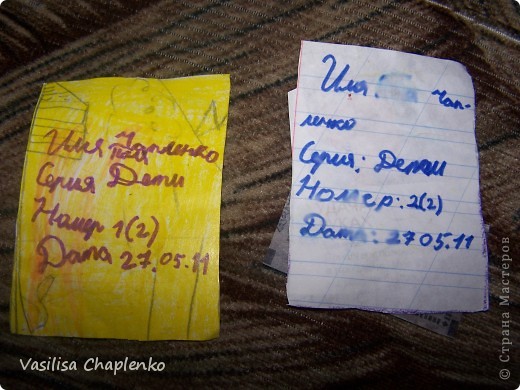 Имя Чапленко
Серия Дети
Номер 1(2)
Дата 27.05.11
Имя: Чап-
ленко
Серия: Дети
Номер: 2(2)
Дата: 27 05.11
Vasilisa Chaplenko
© Страна Мастеров